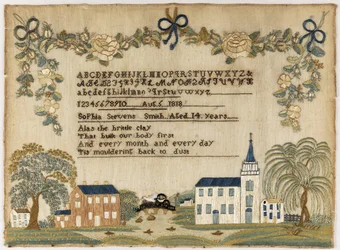 ABCDEFGHIJKLMNOPQRSTUVWXYZ&
abcdefghijklmnopqrstuvwxyz
12345678910 Aug 5 1818
Sophia Stevens Smith Aged 14 years
Alas the brittle clay
That built our body first
And every month and every day
Tis mouldering back to dust